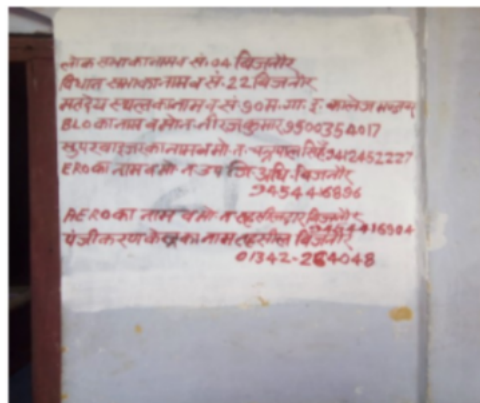 लोक सभा का नाम व सं. 04 बिजनौर
विधान सभा का नाम व सं. 22 बिजनौर
मतदेय स्थल का नाम व सं 90 म. गा. इ. कालेज
BLO का नाम व मो. न. नीरज कुमार
सुपरवाइजर का नाम व मो. न. चन्द्रपाल सिंह 9412452227
ERO का नाम व मो. न. उप जि. अधि. बिजनौर
9454416896
AERO का नाम व मो. न. तहसीलदार बिजनौर
पंजीकरण केन्द्र का नाम तहसील बिजनौर
01342-264048